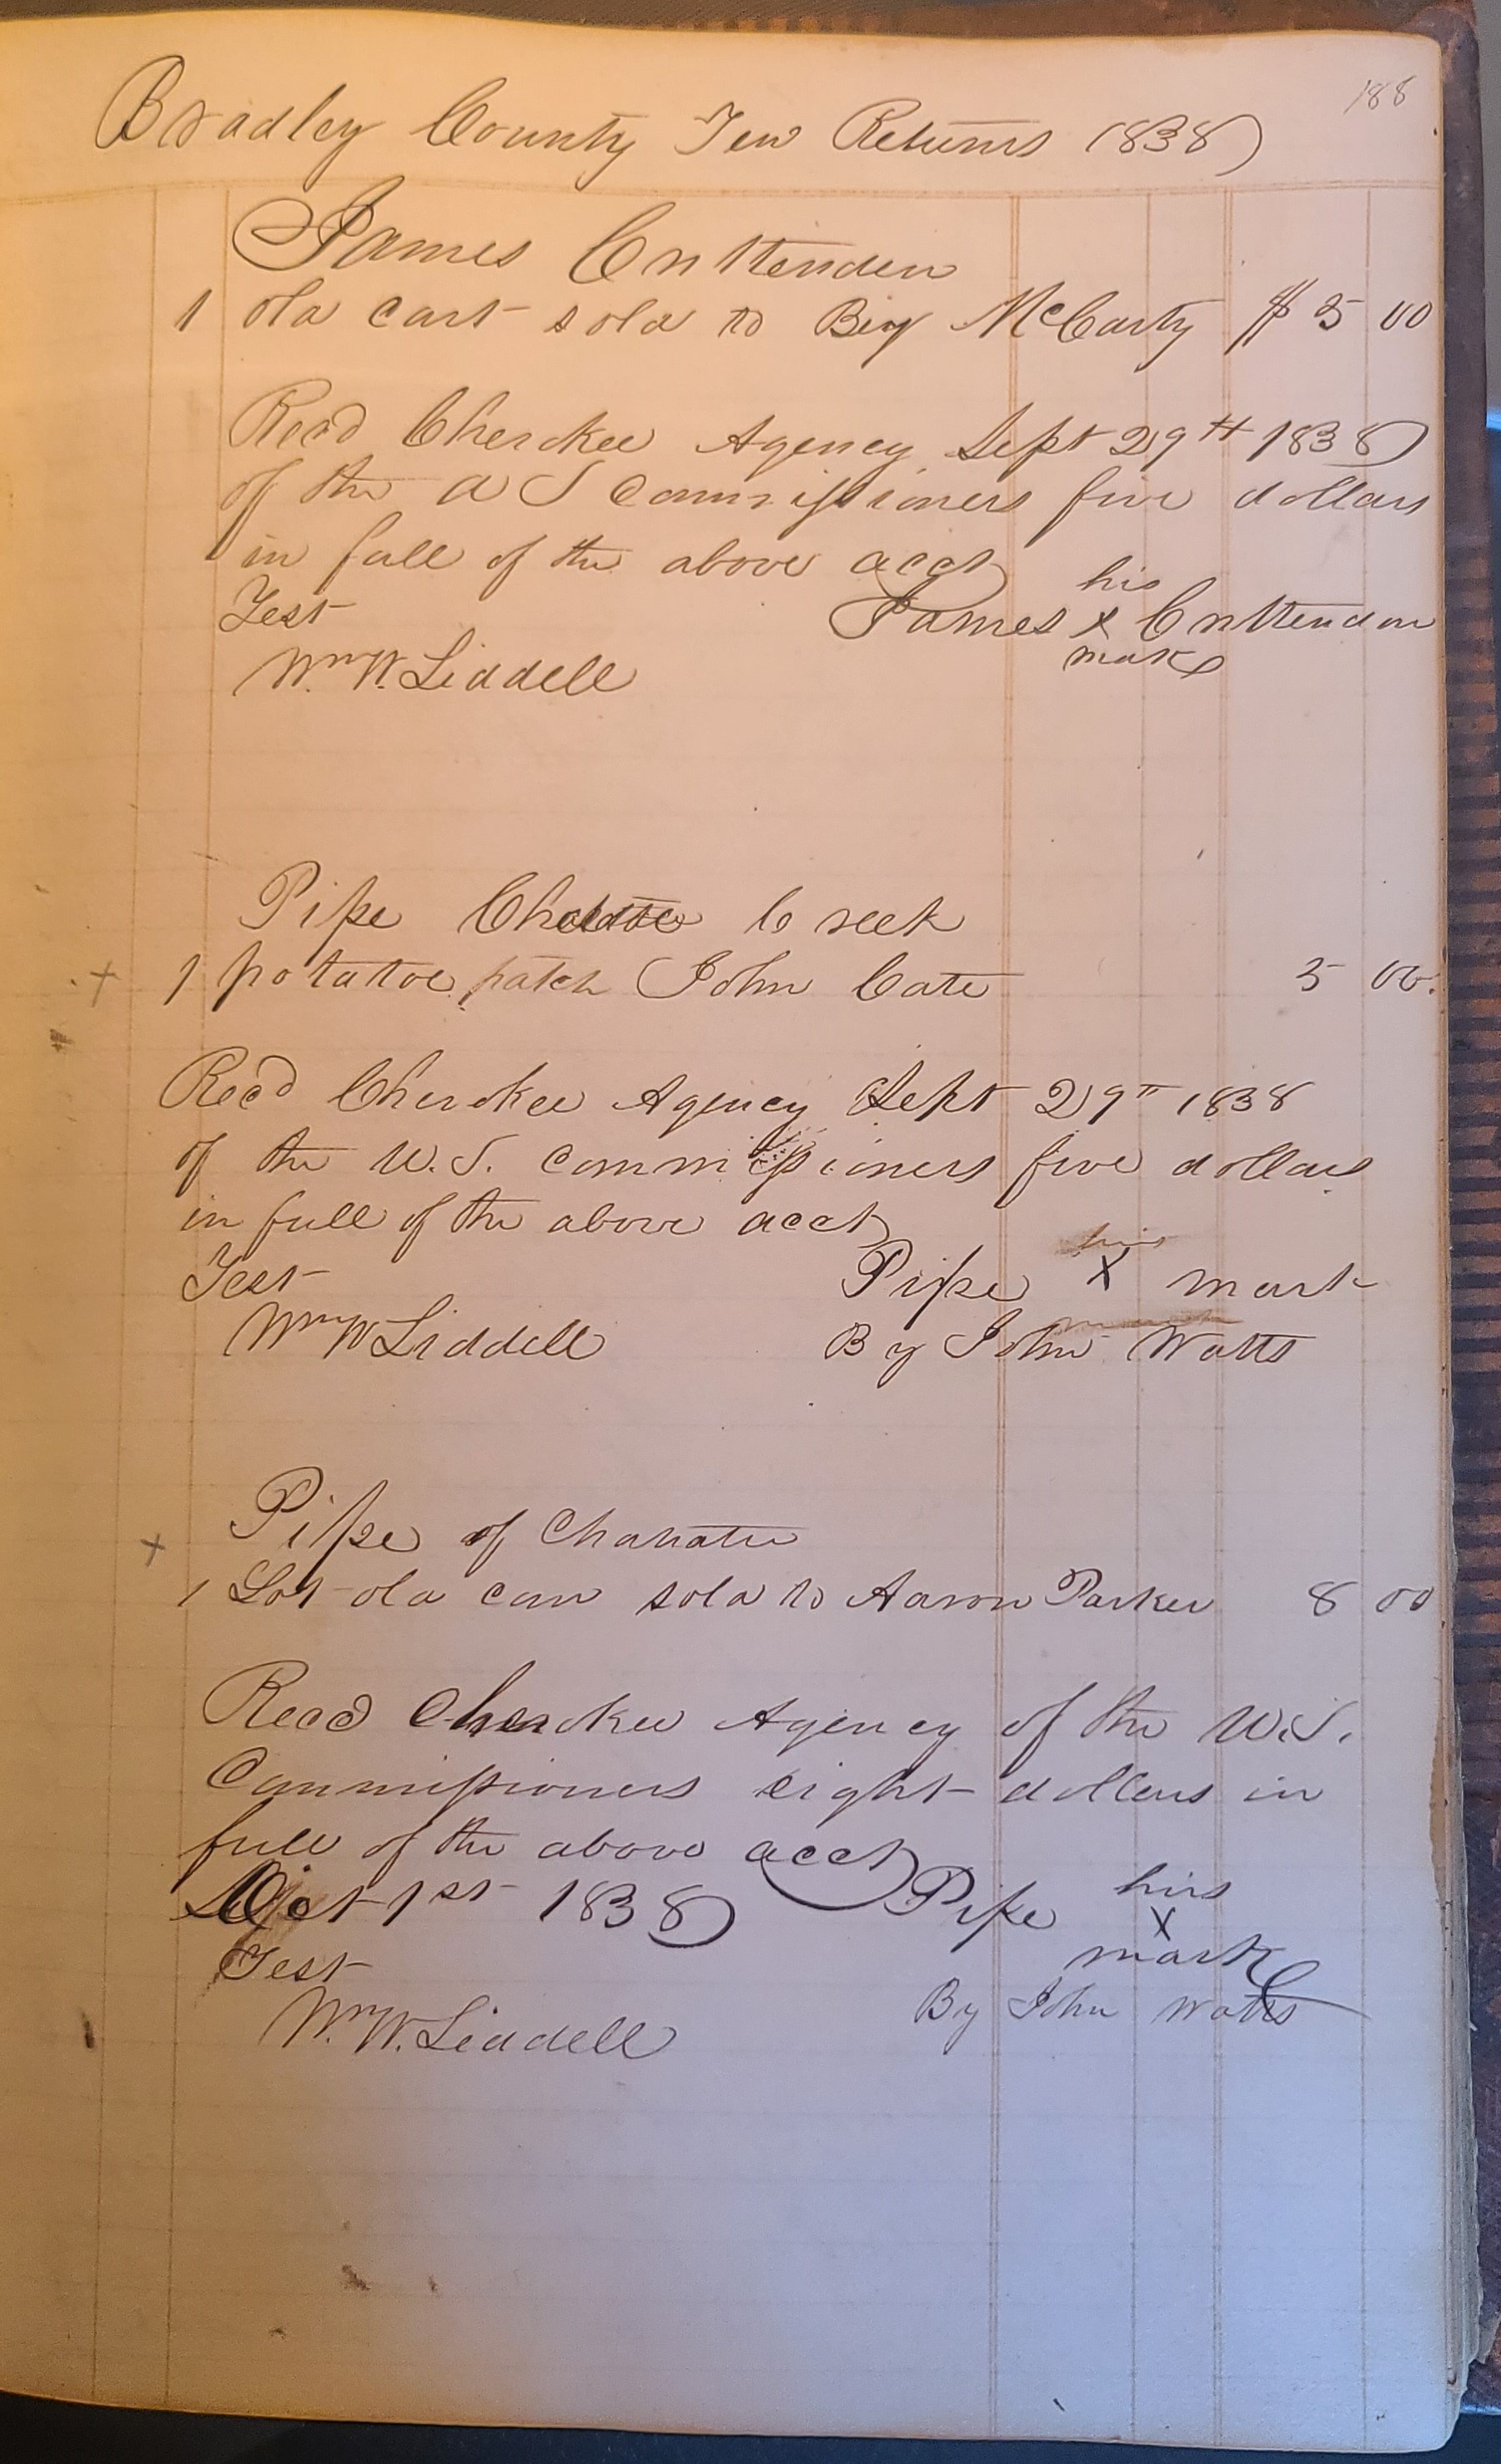 188
Bradley County Ten Returns 1838
James Crittenden
1 old cart sold to Benj McCarty $ 5 00
Recd Cherokee Agency Sept 29th 1838
of the U S Commissioners five dollars
in full of the above acct
Test
his
James x Crittenden
mark
Wm W. Liddell
Pipe Creek
1 potatoe patch John Cate 5 00.
Recd Cherokee Agency Sept 29th 1838
of the U.S. Commissioners five dollars
in full of the above acct
his
Test Pipe X mark
Wm W Liddell By John Watts
Pipe of Chatata
1 Lot old corn sold to Aaron Parker 8 00
Recd Cherokee Agency of the U.S.
Commissioners eight dollars in
full of the above acct
Oct 1st 1838 Pipe his
X
Test mark
Wm W. Liddell By John Watts